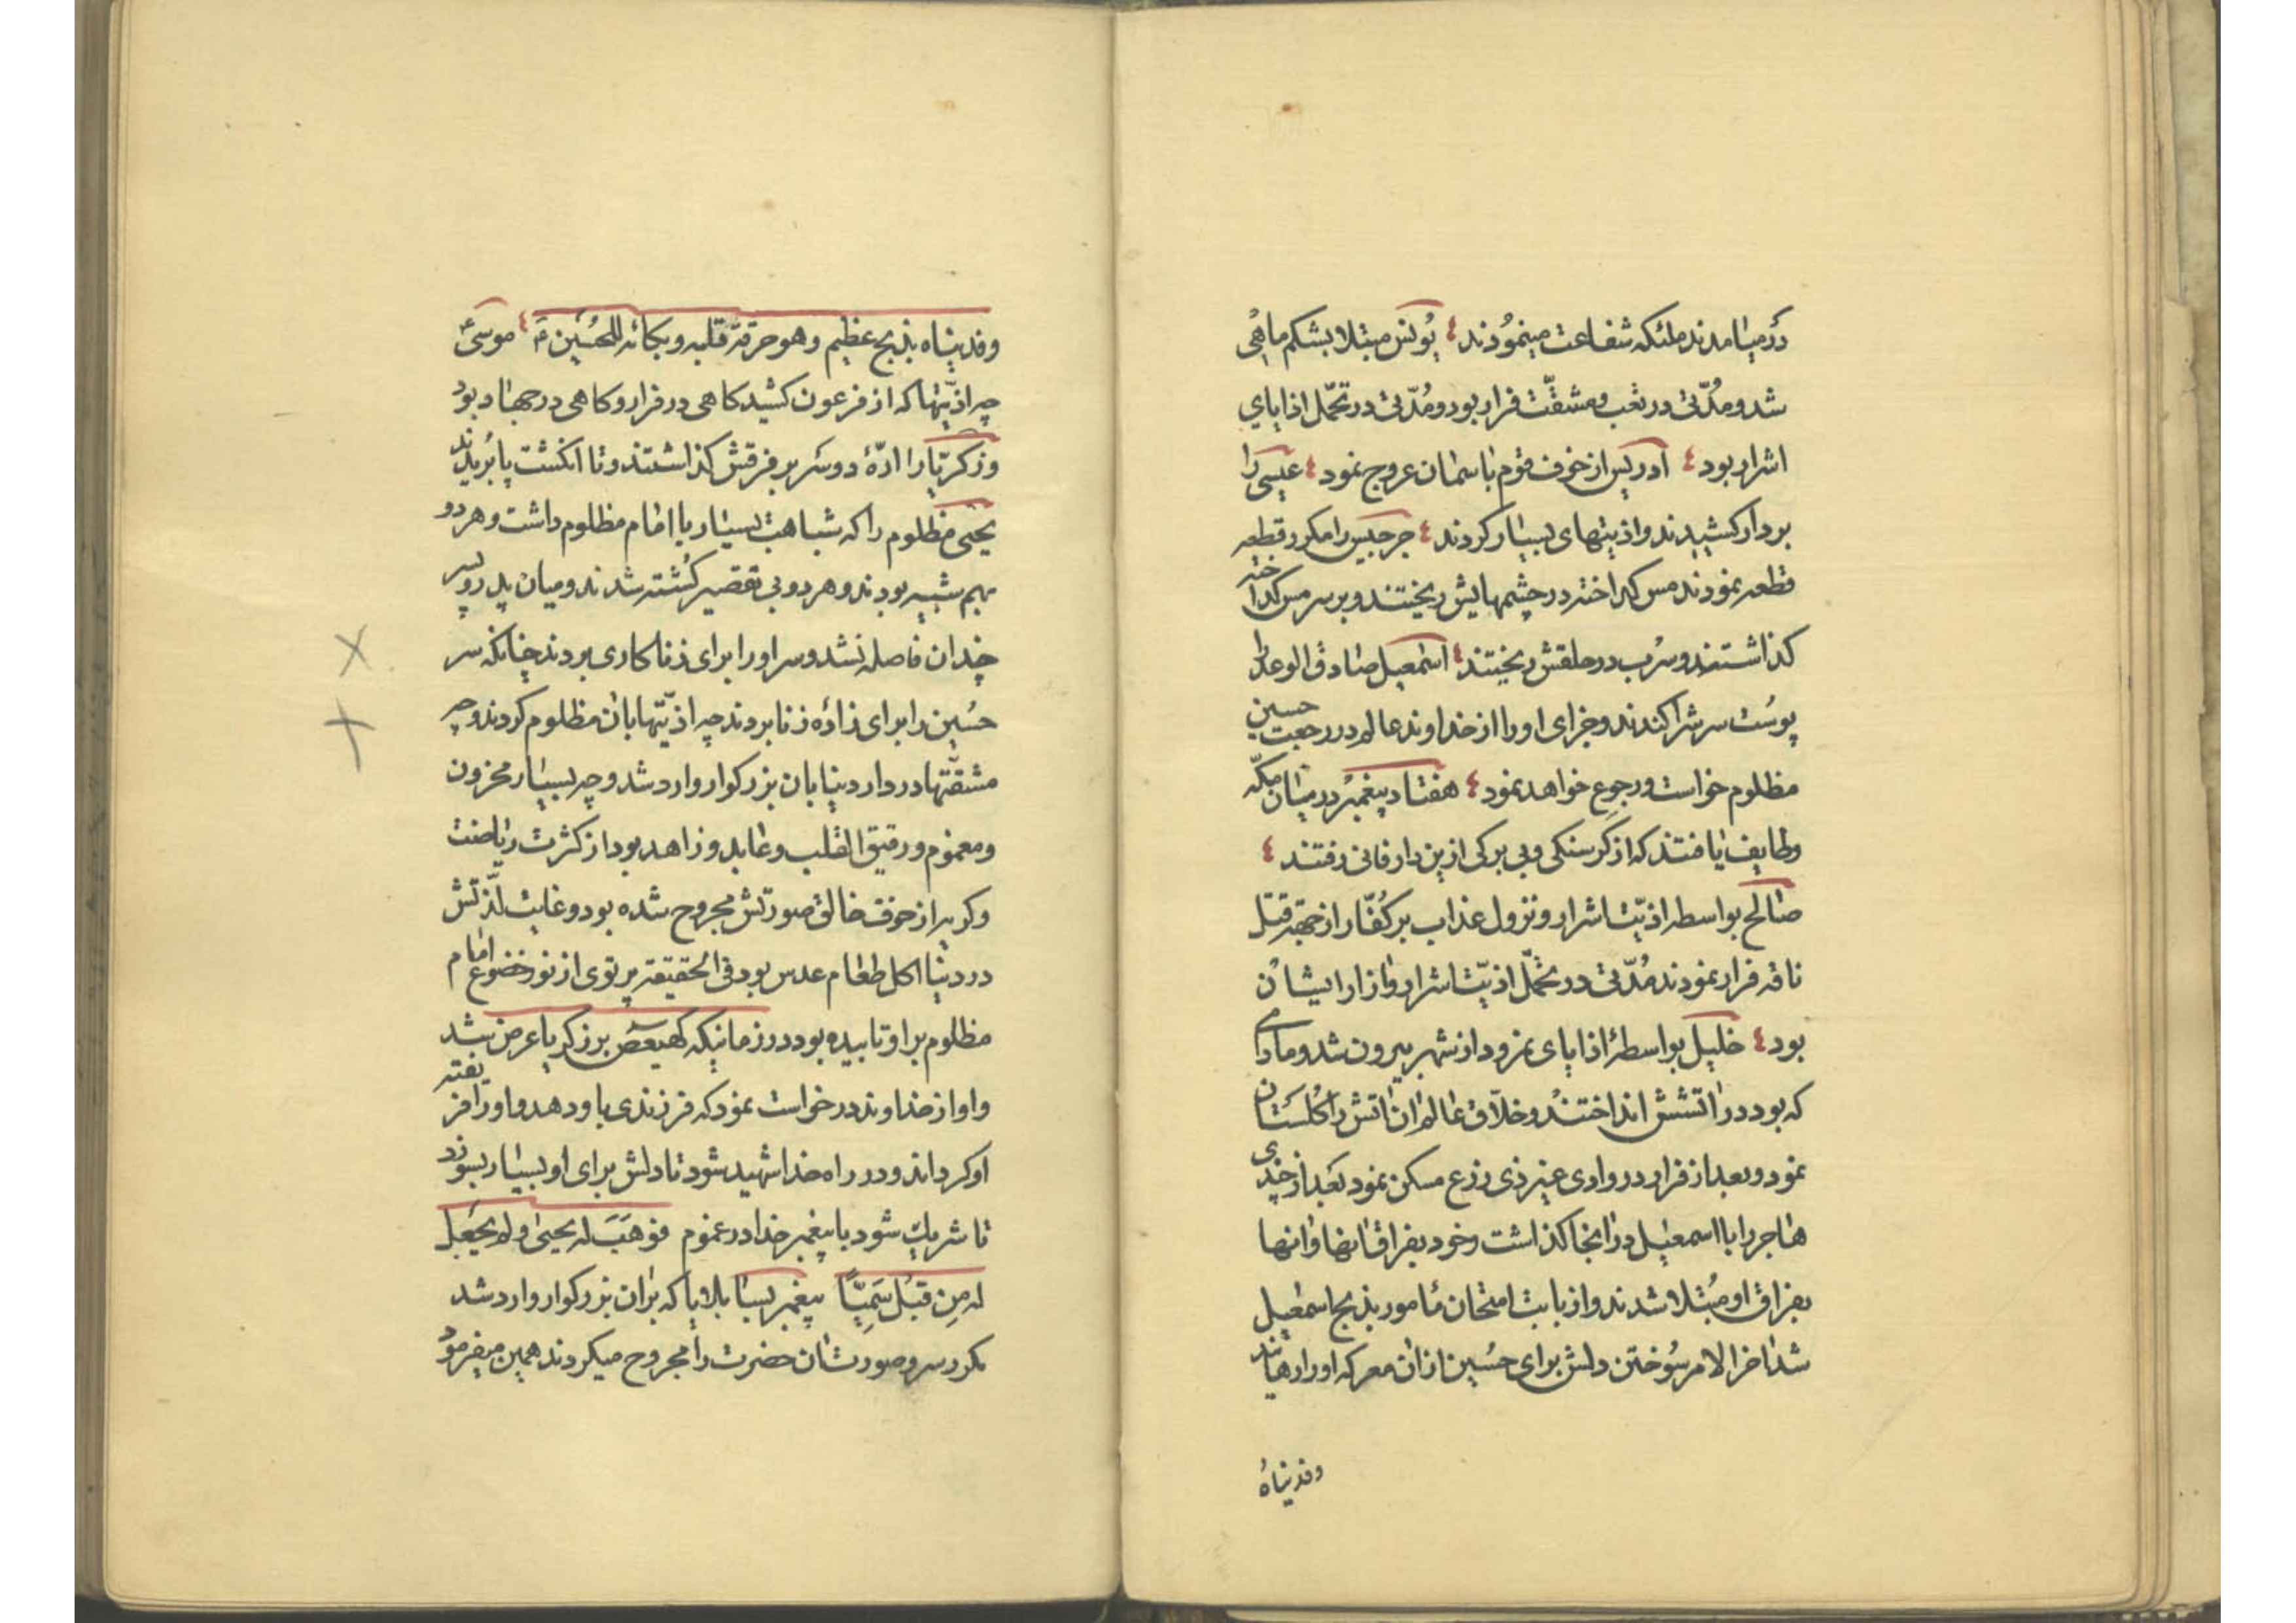 درمیامدند ملئکه شفاعت مینمودند یونس مبتلا بشکم ماهی
شد و مدّتی در تعب و مشقّت فرار بود و مُدّتی در تحمّل اذایای
اشرار بود ادریس از خوف قوم باسمان عروج نمود عیسی را
بردار کشیدند و اذیتهای بسیار کردند جرجیس را مکرر قطعه
قطعه نمودند مس کداخته در چشمهایش ریختند و بر سر مس کداخته
کذاشتند و سُرب در حلقش ریختند اسمعیل صادق الوعد را
پوست سرش را کندند و جزای او را از خداوند عالم در رجعت حسین
مظلوم خواست و رجوع خواهد نمود هفتاد پیغمبر در میان مکّه
و طایف یافتند که از کرسنکی و بی برکی ازین دار فانی رفتند
صالح بواسطه اذیّت اشرار و نزول عذاب بر کُفّار از جهة قتل
ناقه فرار نمودند مُدّتی در تحمّل اذیّت اشرار و ازار ایشان
بود خلیل بواسطهٔ اذایای نمرود از شهر بیرون شد و مادامی
که بود در اتشش انداختند و خلّاق عالم ان اتش را کلستان
نمود و بعد از فرار در وادی غیر ذی زرع مسکن نمود بعد از چندی
هاجر را با اسمعیل در انجا کذاشت و خود بفراق انها و انها
بفراق او مبتلا شدند و از بابت امتحان مامور بذبح اسمعیل
شد اخر الامر سُوختن دلش برای حُسین از ان معرکه او را رهانید
وفدیناهُ
وفدیناه بذبح عظیم و هو حرقة قلبه و بکائه للحُسین موسیٰ
چه اذیّتها که از فرعون کشید کاهی در فرار و کاهی در جهاد بود
و زکریّا را ارّهٔ دو سَر بر فرقش کذاشتند و تا انکشت پا بُریدند
یحیی مظلوم را که شباهت بسیار با امام مظلوم داشت و هر دو
بهم شبیه بودند و هر دو بی تقصیر کُشته شدند و میان پدر و پسر
چندان فاصله نشد و سر او را برای زناکاری بردند چنانکه سر
حُسین را برای زادهٔ زنا بردند چه اذیّتها بان مظلوم کردند و چه
مشقّتها در دار دنیا بان بزرکوار وارد شد و چه بسیار محزون
و مغموم و رقیق القلب و عابد و زاهد بود از کثرت ریاضت
و کریه از خوف خالق صورتش مجروح شده بود و غایت لذّتش
در دنیا اکل طعام عدس بود فی الحقیقة پرتوی از نور خضوع امام
مظلوم بر او تابیده بود در زمانیکه کهیعص بر زکریا عرض شد
و او از خداوند درخواست نمود که فرزندی باو دهد و او را فریفته
او کرداند و در راه خدا شهید شود تا دلش برای او بسیار بسوزد
تا شریک شود با پیغمبر خدا در غموم فوهَبَ له یحیی و لم یَجعل
له مِن قبل سَمِیّاً پیغمبر بسا بلایا که بران بزرکوار وارد شد
مکرر سر و صورت ان حضرت را مجروح میکردند همین میفرمود